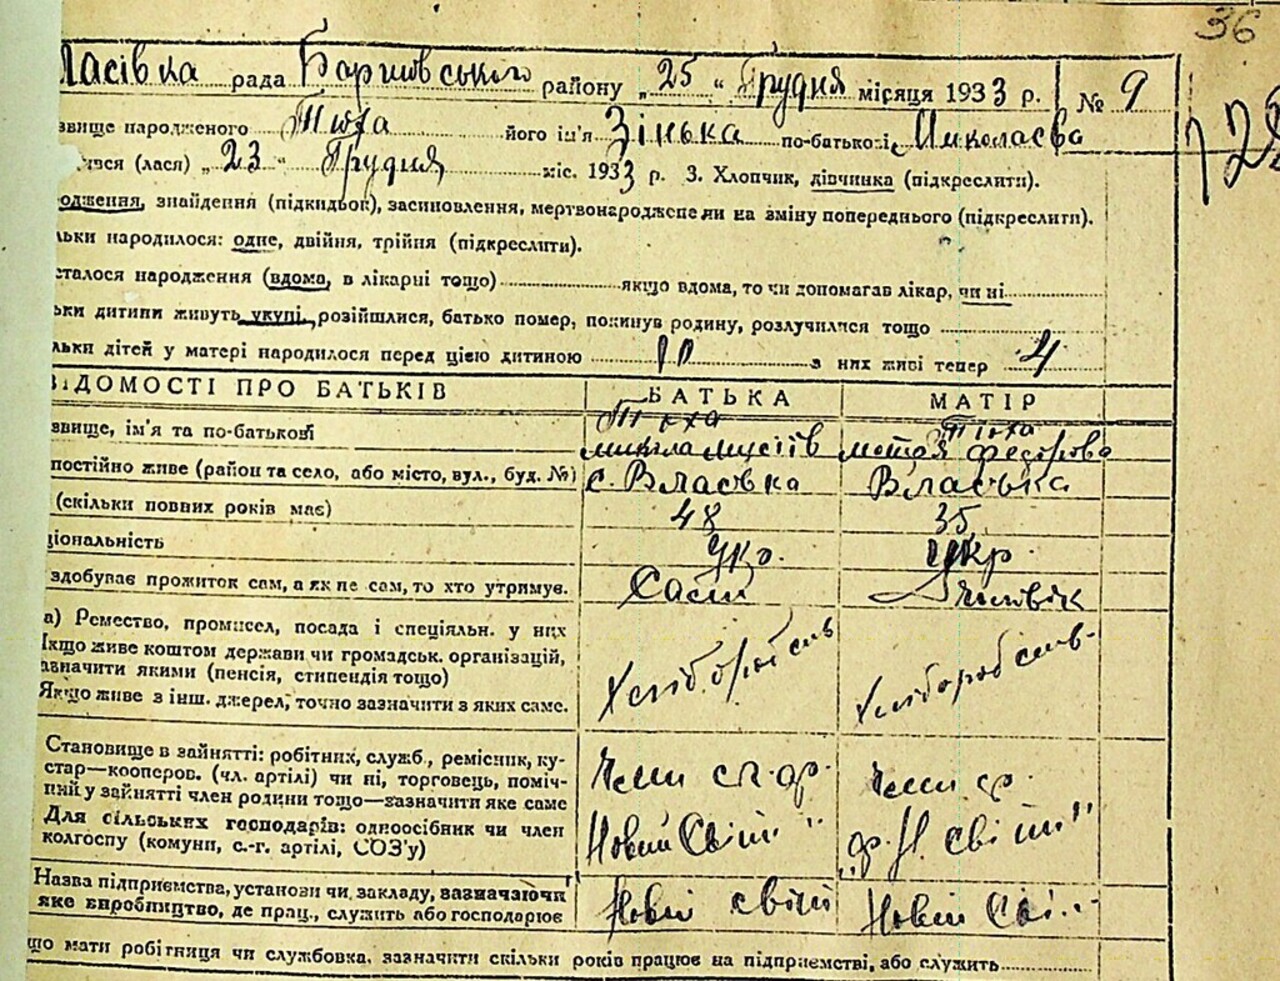 36
ласівка рада район у „25“ Грудня місяця 1933 р. № 9
звище народженого Тюха його ім'я Зінька по-батькові Миколаєва
ився (лася) „23“ Грудня міс. 1933 р. 3. Хлопчик, дівчинка (підкреслити).
одження, знайдення (підкидьок), засиновлення, мертвонароджене ли на зміну попереднього (підкреслити).
льки народилося: одне, двійня, трійня (підкреслити).
сталося народження (вдома, в лікарні тощо) якщо вдома, то чи допомагав лікар, чи ні
ьки дитини живуть укупі, розійшлися, батько помер, покинув родину, розлучилися тощо
льки дітей у матері народилося перед цією дитиною з них живі тепер 4
ВІДОМОСТІ ПРО БАТЬКІВ БАТЬКА МАТІР
Тюха Тюха
звище, ім'я та по-батькові микола Федорова
постійно живе (район та село, або місто, вул., буд. №) с. Власівка Власівка
(скільки повних років має) 48 35
ціональність Укр. Укр
здобуває прожиток сам, а як не сам, то хто утримує. Сам Чоловік
а) Ремество, промисел, посада і спеціяльн. у них
Якщо живе коштом держави чи громадськ. організацій,
азначити якими (пенсія, стипендія тощо) Хлібороб Хлібороб
Якщо живе з інш. джерел, точно зазначити з яких саме.
Становище в зайнятті: робітник, служб., ремісник, ку-
стар—кооперов. (чл. артілі) чи ні, торговець, поміч-
ний у зайнятті член родини тощо—зазначити яке саме
Для сільських господарів: одноосібник чи член
колгоспу (комуни, с.-г. артілі, СОЗ'у) Новий Світ" Н. Світ"
Назва підприємства, установи чи закладу, зазначаючи
яке виробництво, де прац., служить або господарює Новий світ Новий Сві
що мати робітниця чи службовка, зазначити скільки років працює на підприємстві, або служить